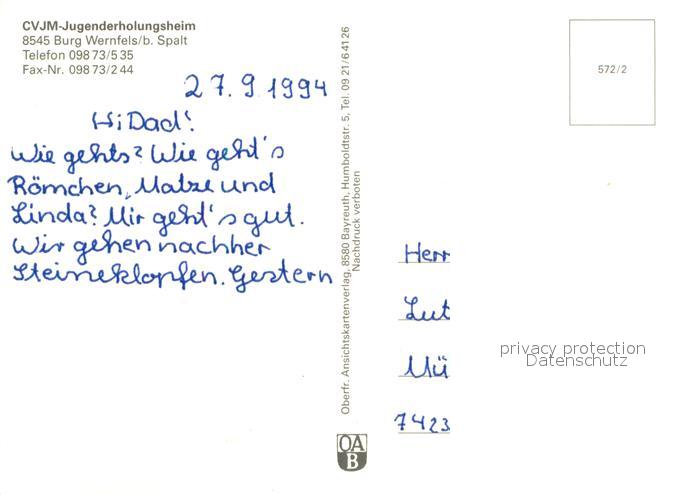 CVJM-Jugenderholungsheim
8545 Burg Wernfels/b. Spalt
Telefon 098 73/5 35
Fax-Nr. 098 73/2 44
27. 9. 1994
Hi Dad!
Wie gehts? Wie geht's
Römchen, Matze und
Linda? Mir geht's gut.
Wir gehen nachher
Steineklopfen. Gestern
Oberfr. Ansichtskartenverlag, 8580 Bayreuth, Humboldtstr. 5, Tel. 09 21/6 41 26
Nachdruck verboten
OA
B
572/2
Herr
Lut
Mü
7423
privacy protection
Datenschutz